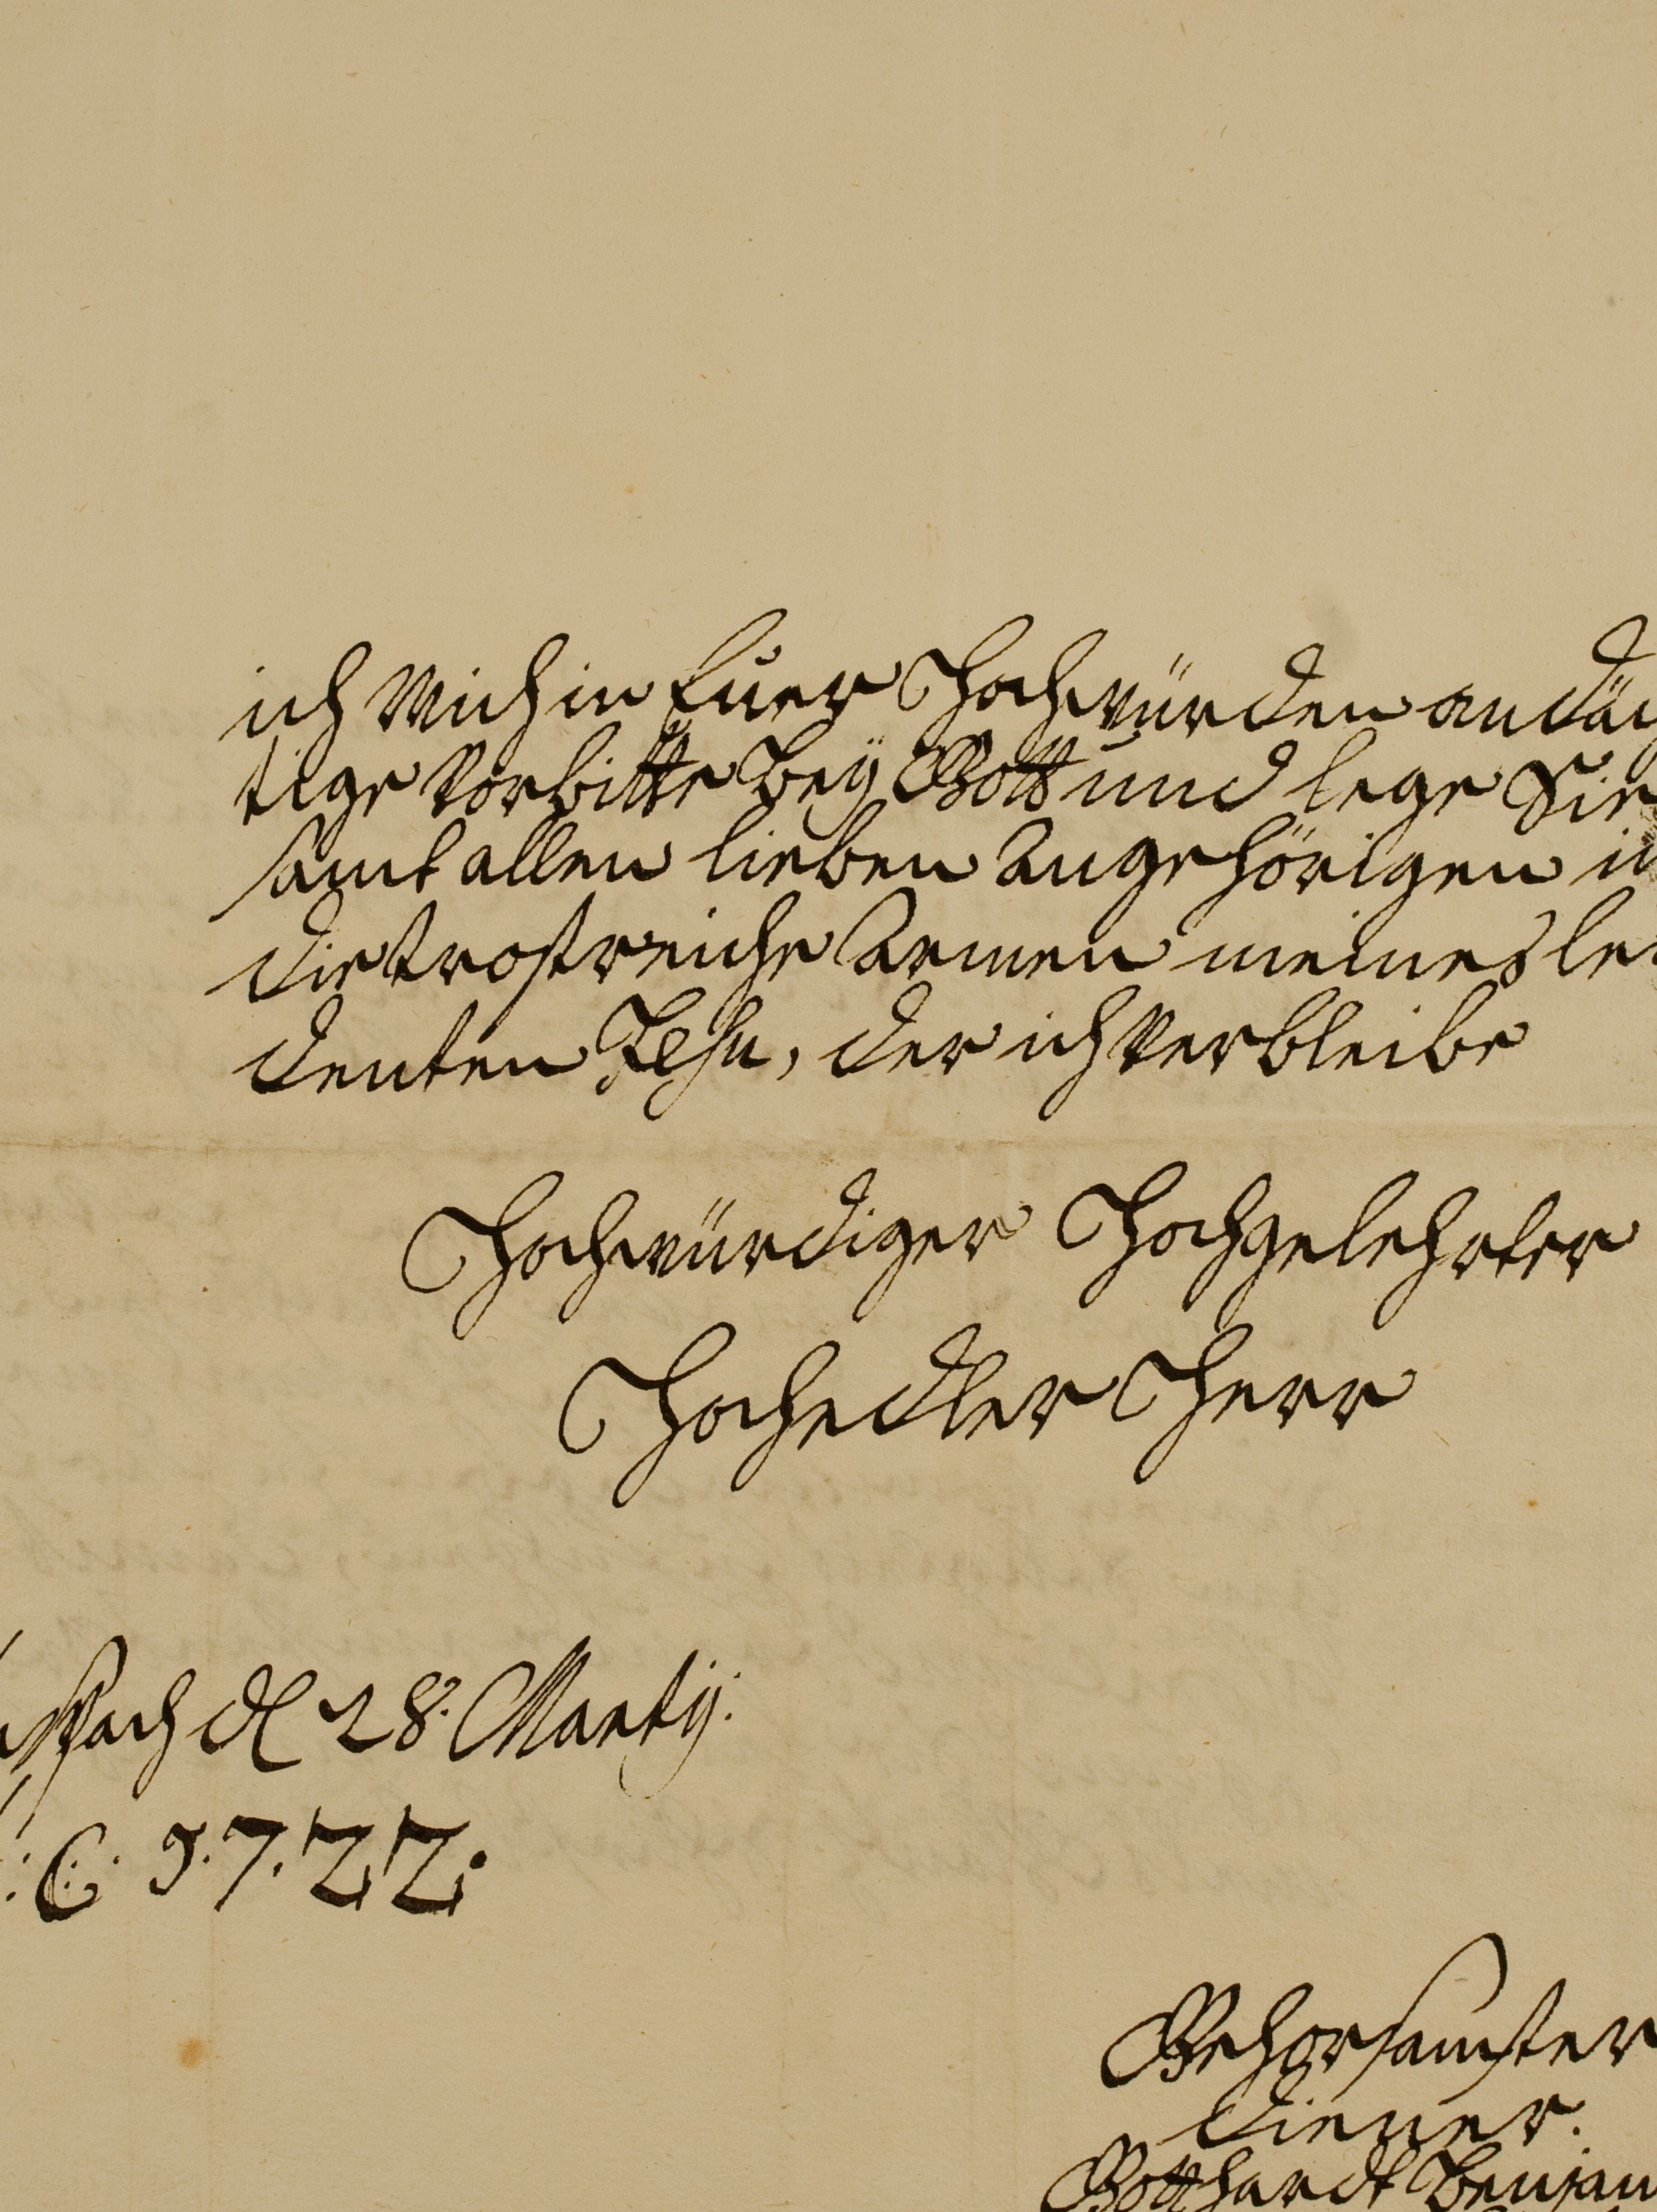 ich mich in Euer Hochwürden andäch
tige Vorbitte bey Gott und lege Sie
samt allen lieben Angehörigen in
die trostreiche Armen meines lei
denten Jesu, der ich verbleibe
Hochwürdiger Hochgelehrter
Hochedler Herr
spach d 28. Martij.
: C. 1.7.22.
Gehorsamster
diener.
Gotthardt Benjam